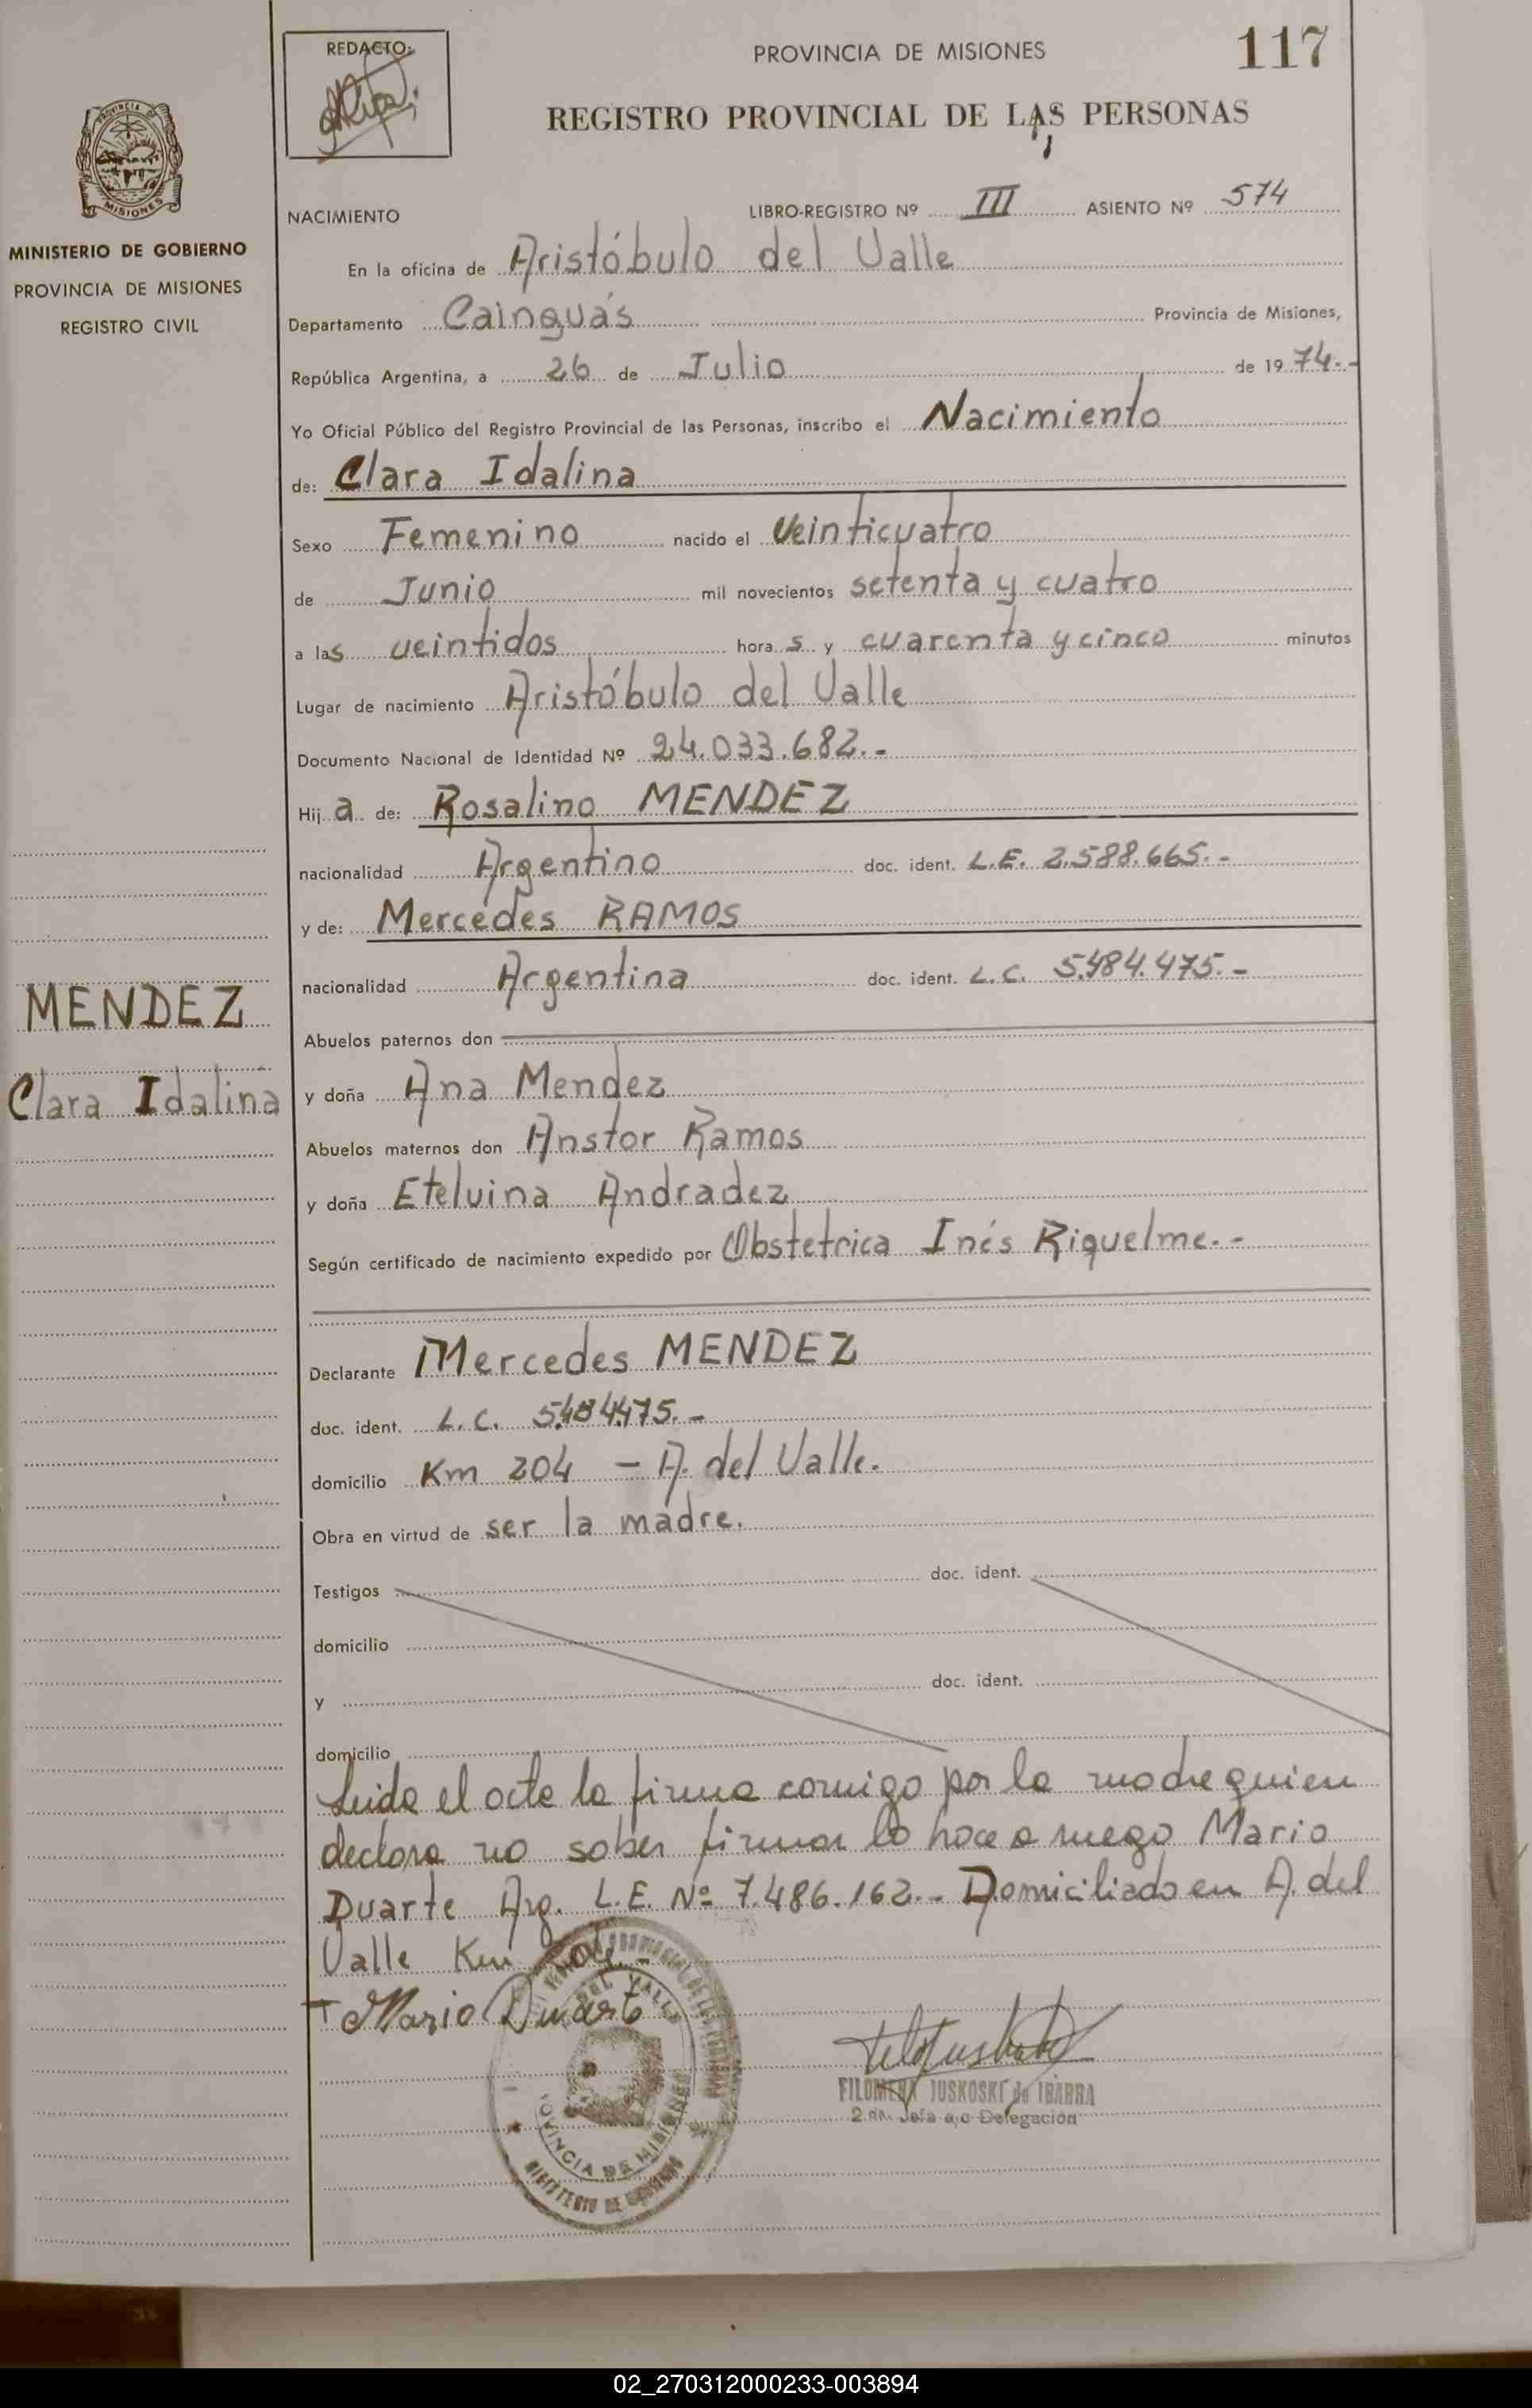 REDACTO:
PROVINCIA DE MISIONES
117
REGISTRO PROVINCIAL DE LAS PERSONAS
PROVINCIA DE
MISIONES
MINISTERIO DE GOBIERNO
PROVINCIA DE MISIONES
REGISTRO CIVIL
NACIMIENTO LIBRO-REGISTRO Nº III ASIENTO Nº 574
En la oficina de Aristóbulo del Valle
Departamento Cainguás Provincia de Misiones,
República Argentina, a 26 de Julio de 1974.-
Yo Oficial Público del Registro Provincial de las Personas, inscribo el Nacimiento
de: Clara Idalina
Sexo Femenino nacido el Veinticuatro
de Junio mil novecientos setenta y cuatro
a las veintidos horas y cuarenta y cinco minutos
Lugar de nacimiento Aristóbulo del Valle
Documento Nacional de Identidad Nº 24.033.682.-
Hija de: Rosalino MENDEZ
nacionalidad Argentino doc. ident. L.E. 2.588.665.-
y de: Mercedes RAMOS
nacionalidad Argentina doc. ident. L.C. 5.484.475.-
MENDEZ
Clara Idalina
Abuelos paternos don
y doña Ana Mendez
Abuelos maternos don Anstor Ramos
y doña Etelvina Andradez
Según certificado de nacimiento expedido por Obstetrica Inés Riquelme.-
Declarante Mercedes MENDEZ
doc. ident. L.C. 5.484.475.-
domicilio Km 204 - A. del Valle.
Obra en virtud de ser la madre.
Testigos doc. ident.
domicilio
y doc. ident.
domicilio
Leida el acta la firma comigo por la madre quien
declara no saber firmar lo hace a ruego Mario
Duarte Arg. L.E. Nº 7.486.162.- Domiciliado en A. del
Valle Km 204.-
Mario Duarte
DEL VALLE
PROVINCIA DE MISIONES
MINISTERIO DE GOBIERNO
FILOMENA JUSKOSKI de IBARRA
2da. Jefa a/c Delegación
02_270312000233-003894